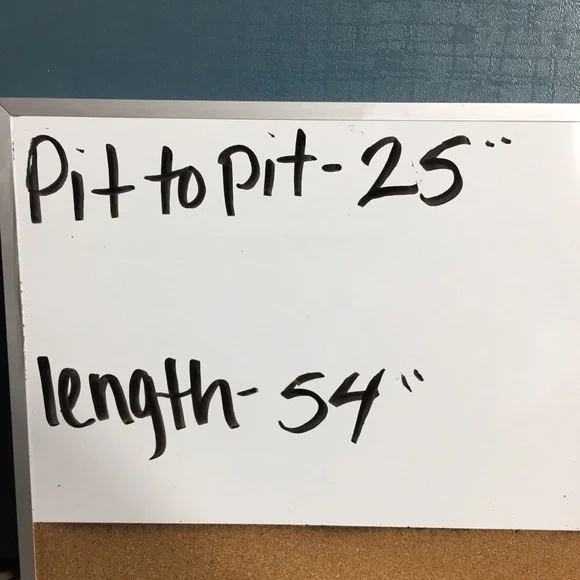 Pit to pit - 25"
length - 54"